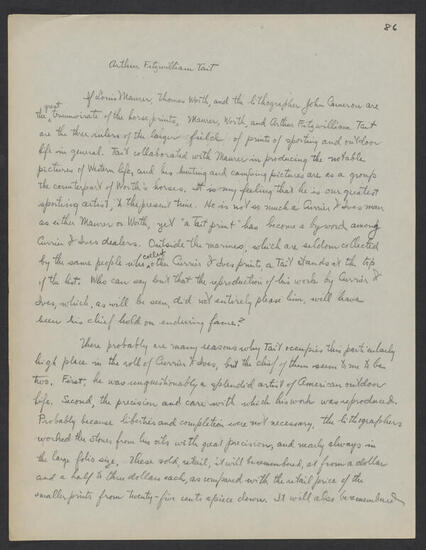 86
Arthur Fitzwilliam Tait
If Louis Maurer, Thomas Worth, and the lithographer John Cameron are
the great triumvirate of the horse prints, Maurer, Worth, and Arthur Fitzwilliam Tait
are the three rulers of the larger field of prints of sporting and outdoor
life in general. Tait collaborated with Maurer in producing the notable
pictures of Western life, and his hunting and camping pictures are as a group
the counterpart of Worth's horses. It is my feeling that he is our greatest
sporting artist, to the present time. He is not so much a Currier & Ives man
as either Maurer or Worth, yet "a Tait print" has become a byword among
Currier & Ives dealers. Outside the marines, which are seldom collected
by the same people who collect other Currier & Ives prints, a Tait stands at the top
of the list. Who can say but that the reproduction of his work by Currier &
Ives, which, as will be seen, did not entirely please him, will have
been his chief hold on enduring fame?
There probably are many reasons why Tait occupies this particularly
high place in the roll of Currier & Ives, but the chief of them seem to me to be
two. First, he was unquestionably a splendid artist of American outdoor
life. Second, the precision and care with which his work was reproduced.
Probably because liberties and completion were not necessary, the lithographers
worked the stones from his oils with great precision, and nearly always in
the large folio size. These sold, retail, it will be remembered, at from a dollar
and a half to three dollars each, as compared with the retail price of the
smaller prints from twenty-five cents apiece down. It will also be remembered